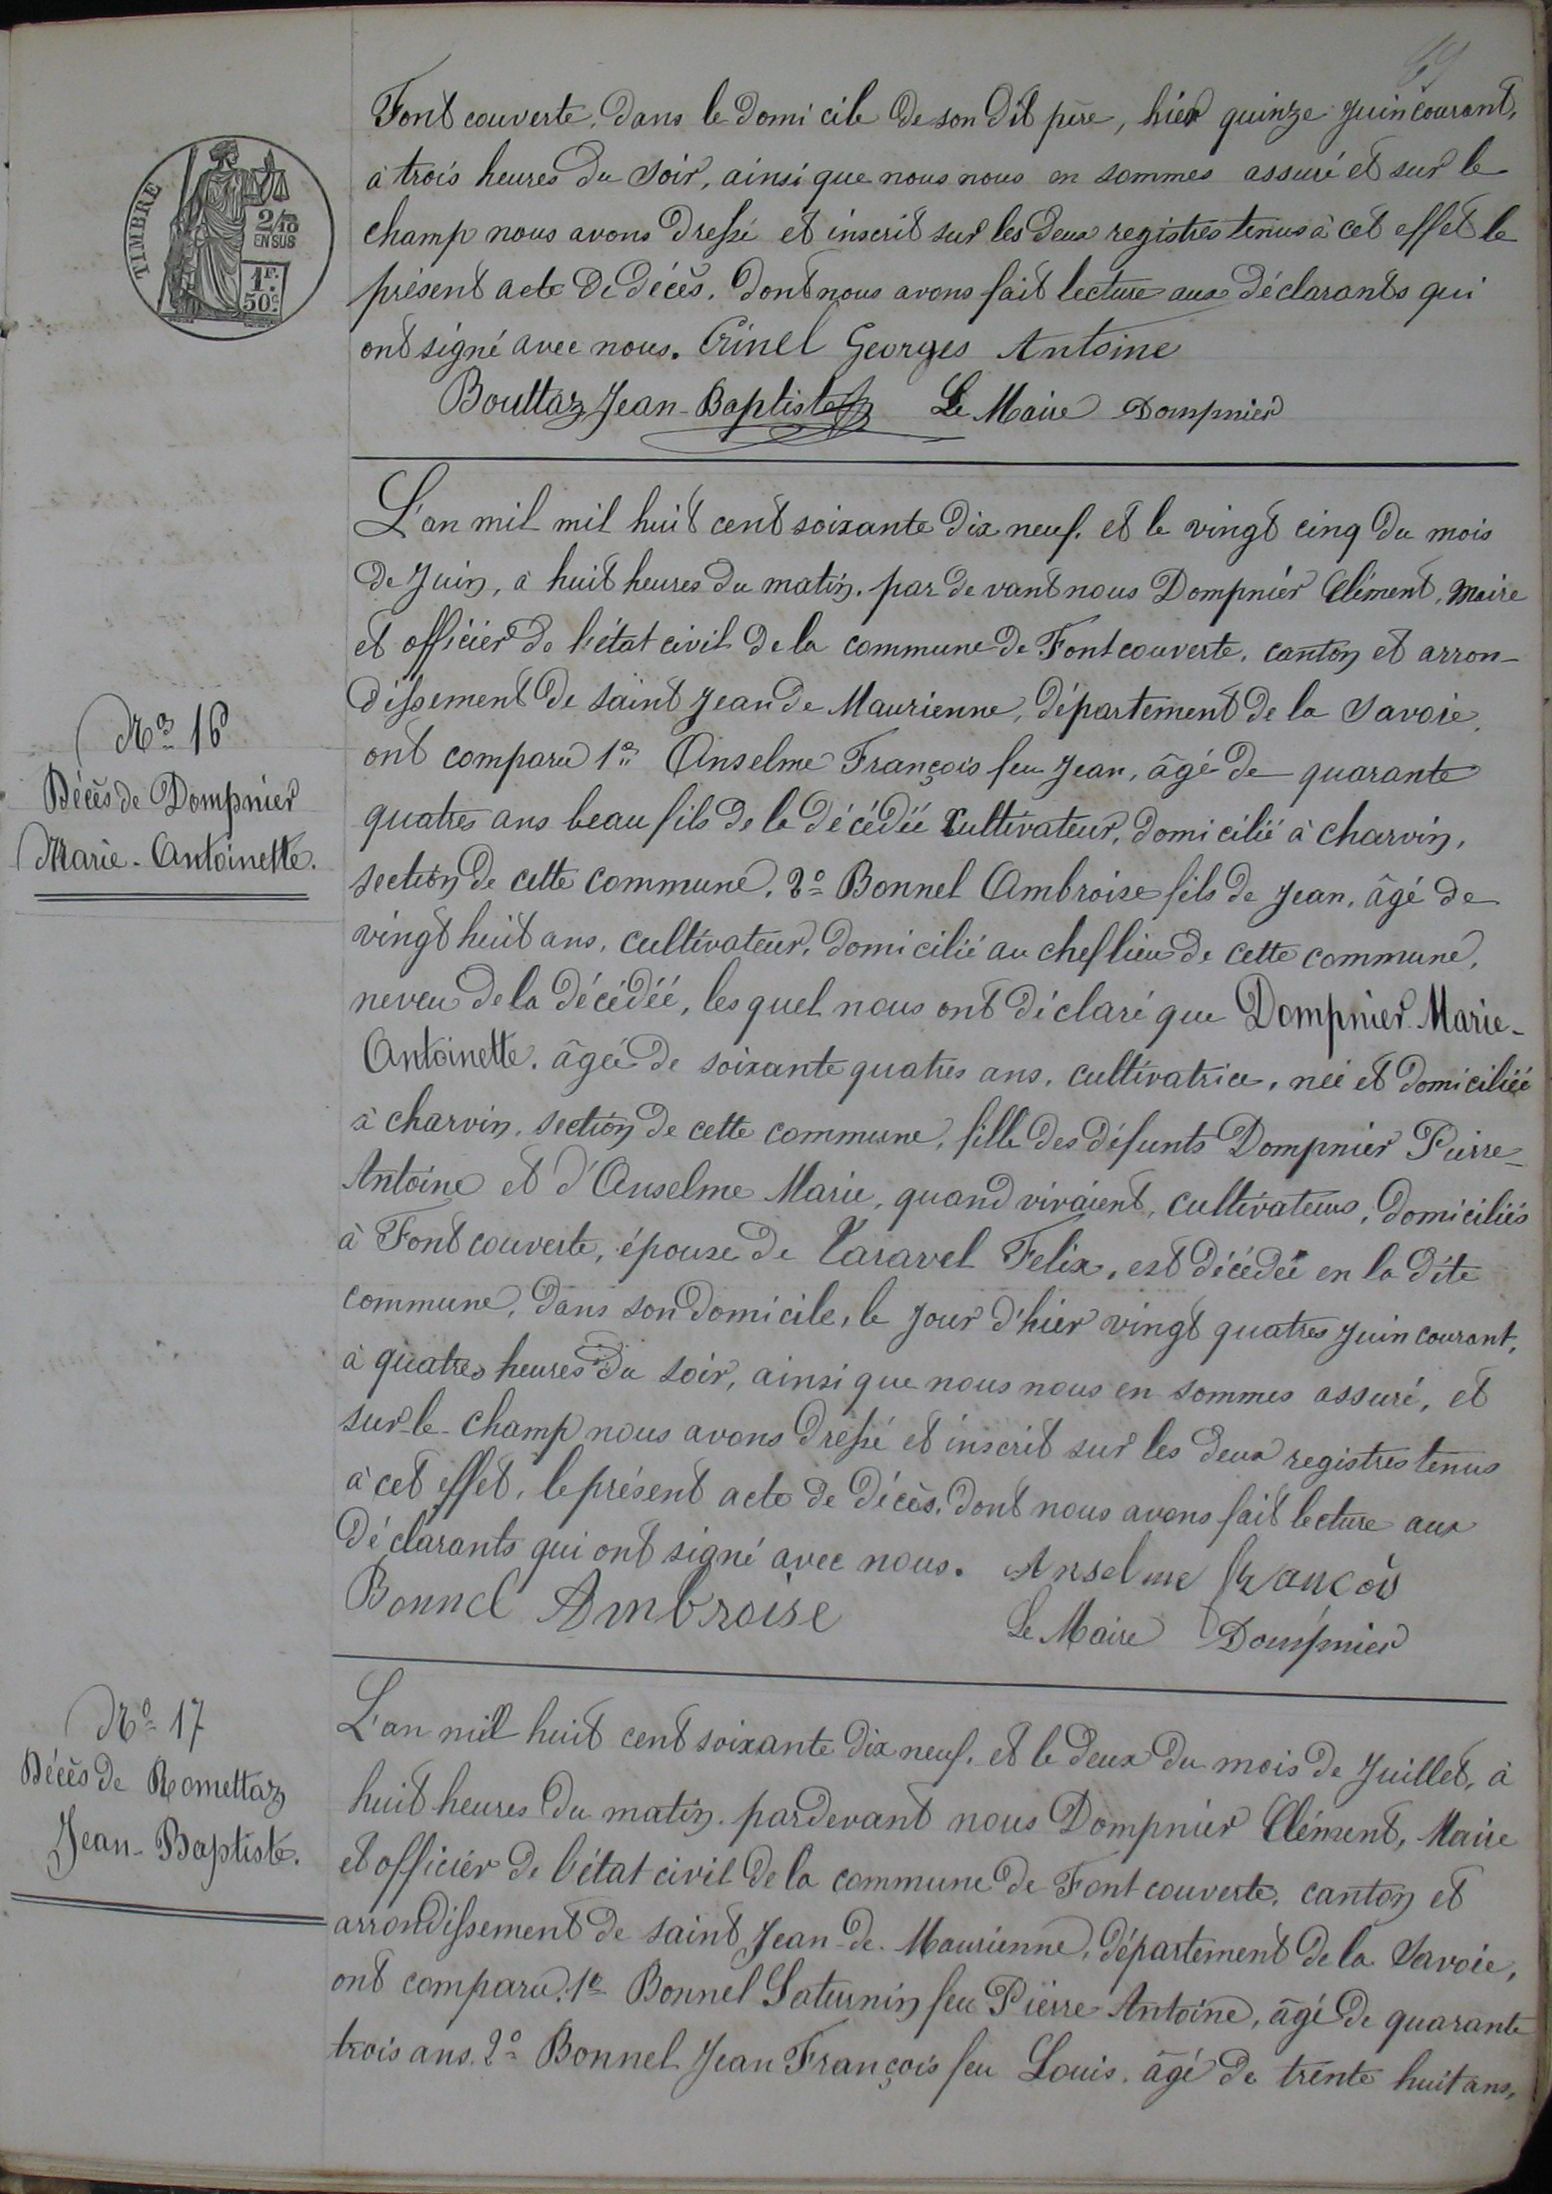 Font couverte, dans le domicile de son dit père, hier quinze Juin courant,
à trois heures du soir, ainsi que nous nous en sommes assuré et sur le
champ nous avons dressé et inscrit sur les deux registres tenus à cet effet le
présent acte de décès, dont nous avons fait lecture aux déclarants qui
ont signé avec nous. Crinel Georges Antoine
Bouttaz Jean-Baptiste Le Maire Dompnier
TIMBRE
2/10
EN SUS
1F.
50c.
L'an mil mil huit cent soixante dix neuf, et le vingt cinq du mois
de Juin, à huit heures du matin, par devant nous Dompnier Clément, Maire
et officier de l'état civil de la commune de Font couverte, canton et arron-
dissement de saint Jean de Maurienne, département de la Savoie,
ont comparu 1o Anselme François feu Jean, âgé de quarante
quatres ans beau fils de la décédée cultivateur, domicilié à charvin,
section de cette commune, 2o Bonnel Ambroise fils de Jean, âgé de
vingt huit ans, cultivateur, domicilié au chef lieu de cette commune,
neveu de la décédée, les quel nous ont déclaré que Dompnier Marie-
Antoinette, âgée de soixante quatres ans, cultivatrice, née et domiciliée
à charvin, section de cette commune, fille des défunts Dompnier Pierre-
Antoine et d'Anselme Marie, quand vivaient, cultivateurs, domiciliés
à Font couverte, épouse de Taravel Felix, est décédée en la dite
commune, dans son domicile, le jour d'hier vingt quatres Juin courant,
à quatres heures du soir, ainsi que nous nous en sommes assuré, et
sur-le-champ nous avons dressé et inscrit sur les deux registres tenus
à cet effet, le présent acte de décès, dont nous avons fait lecture aux
déclarants qui ont signé avec nous. Anselme françois
Bonnel Ambroise Le Maire Dompnier
No 16
Décès de Dompnier
Marie-Antoinette.
No 17
Décès de Romettaz
Jean-Baptiste.
L'an mil huit cent soixante dix neuf, et le deux du mois de Juillet, à
huit heures du matin, pardevant nous Dompnier Clément, Maire
et officier de l'état civil de la commune de Font couverte, canton et
arrondissement de saint Jean-de-Maurienne, département de la Savoie,
ont comparu, 1o Bonnel Saturnin feu Pierre Antoine, âgé de quarante
trois ans, 2o Bonnel Jean François feu Louis, âgé de trente huit ans,